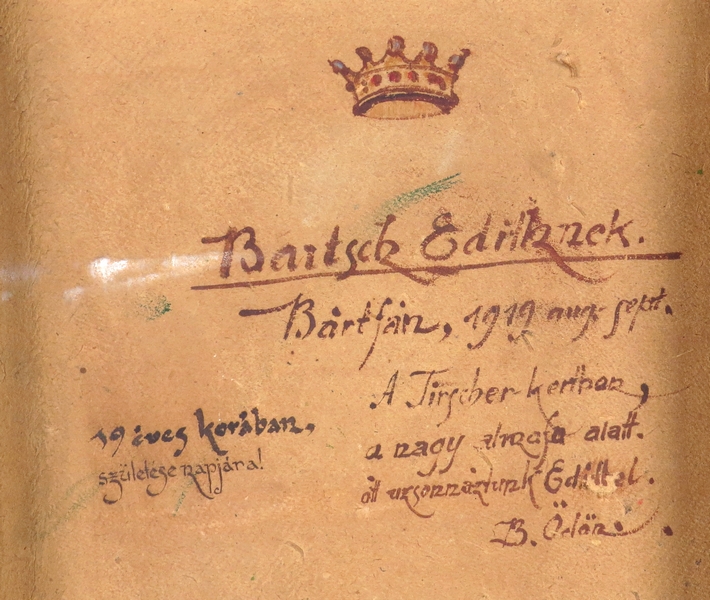 Bartsch Editknek.
Bártfán, 1919 aug. sept.
A Tirscher kertben,
a nagy almafa alatt.
ott uzsonnáztunk Edittel.
B. Ödön.
19 éves korában,
születése napjára!